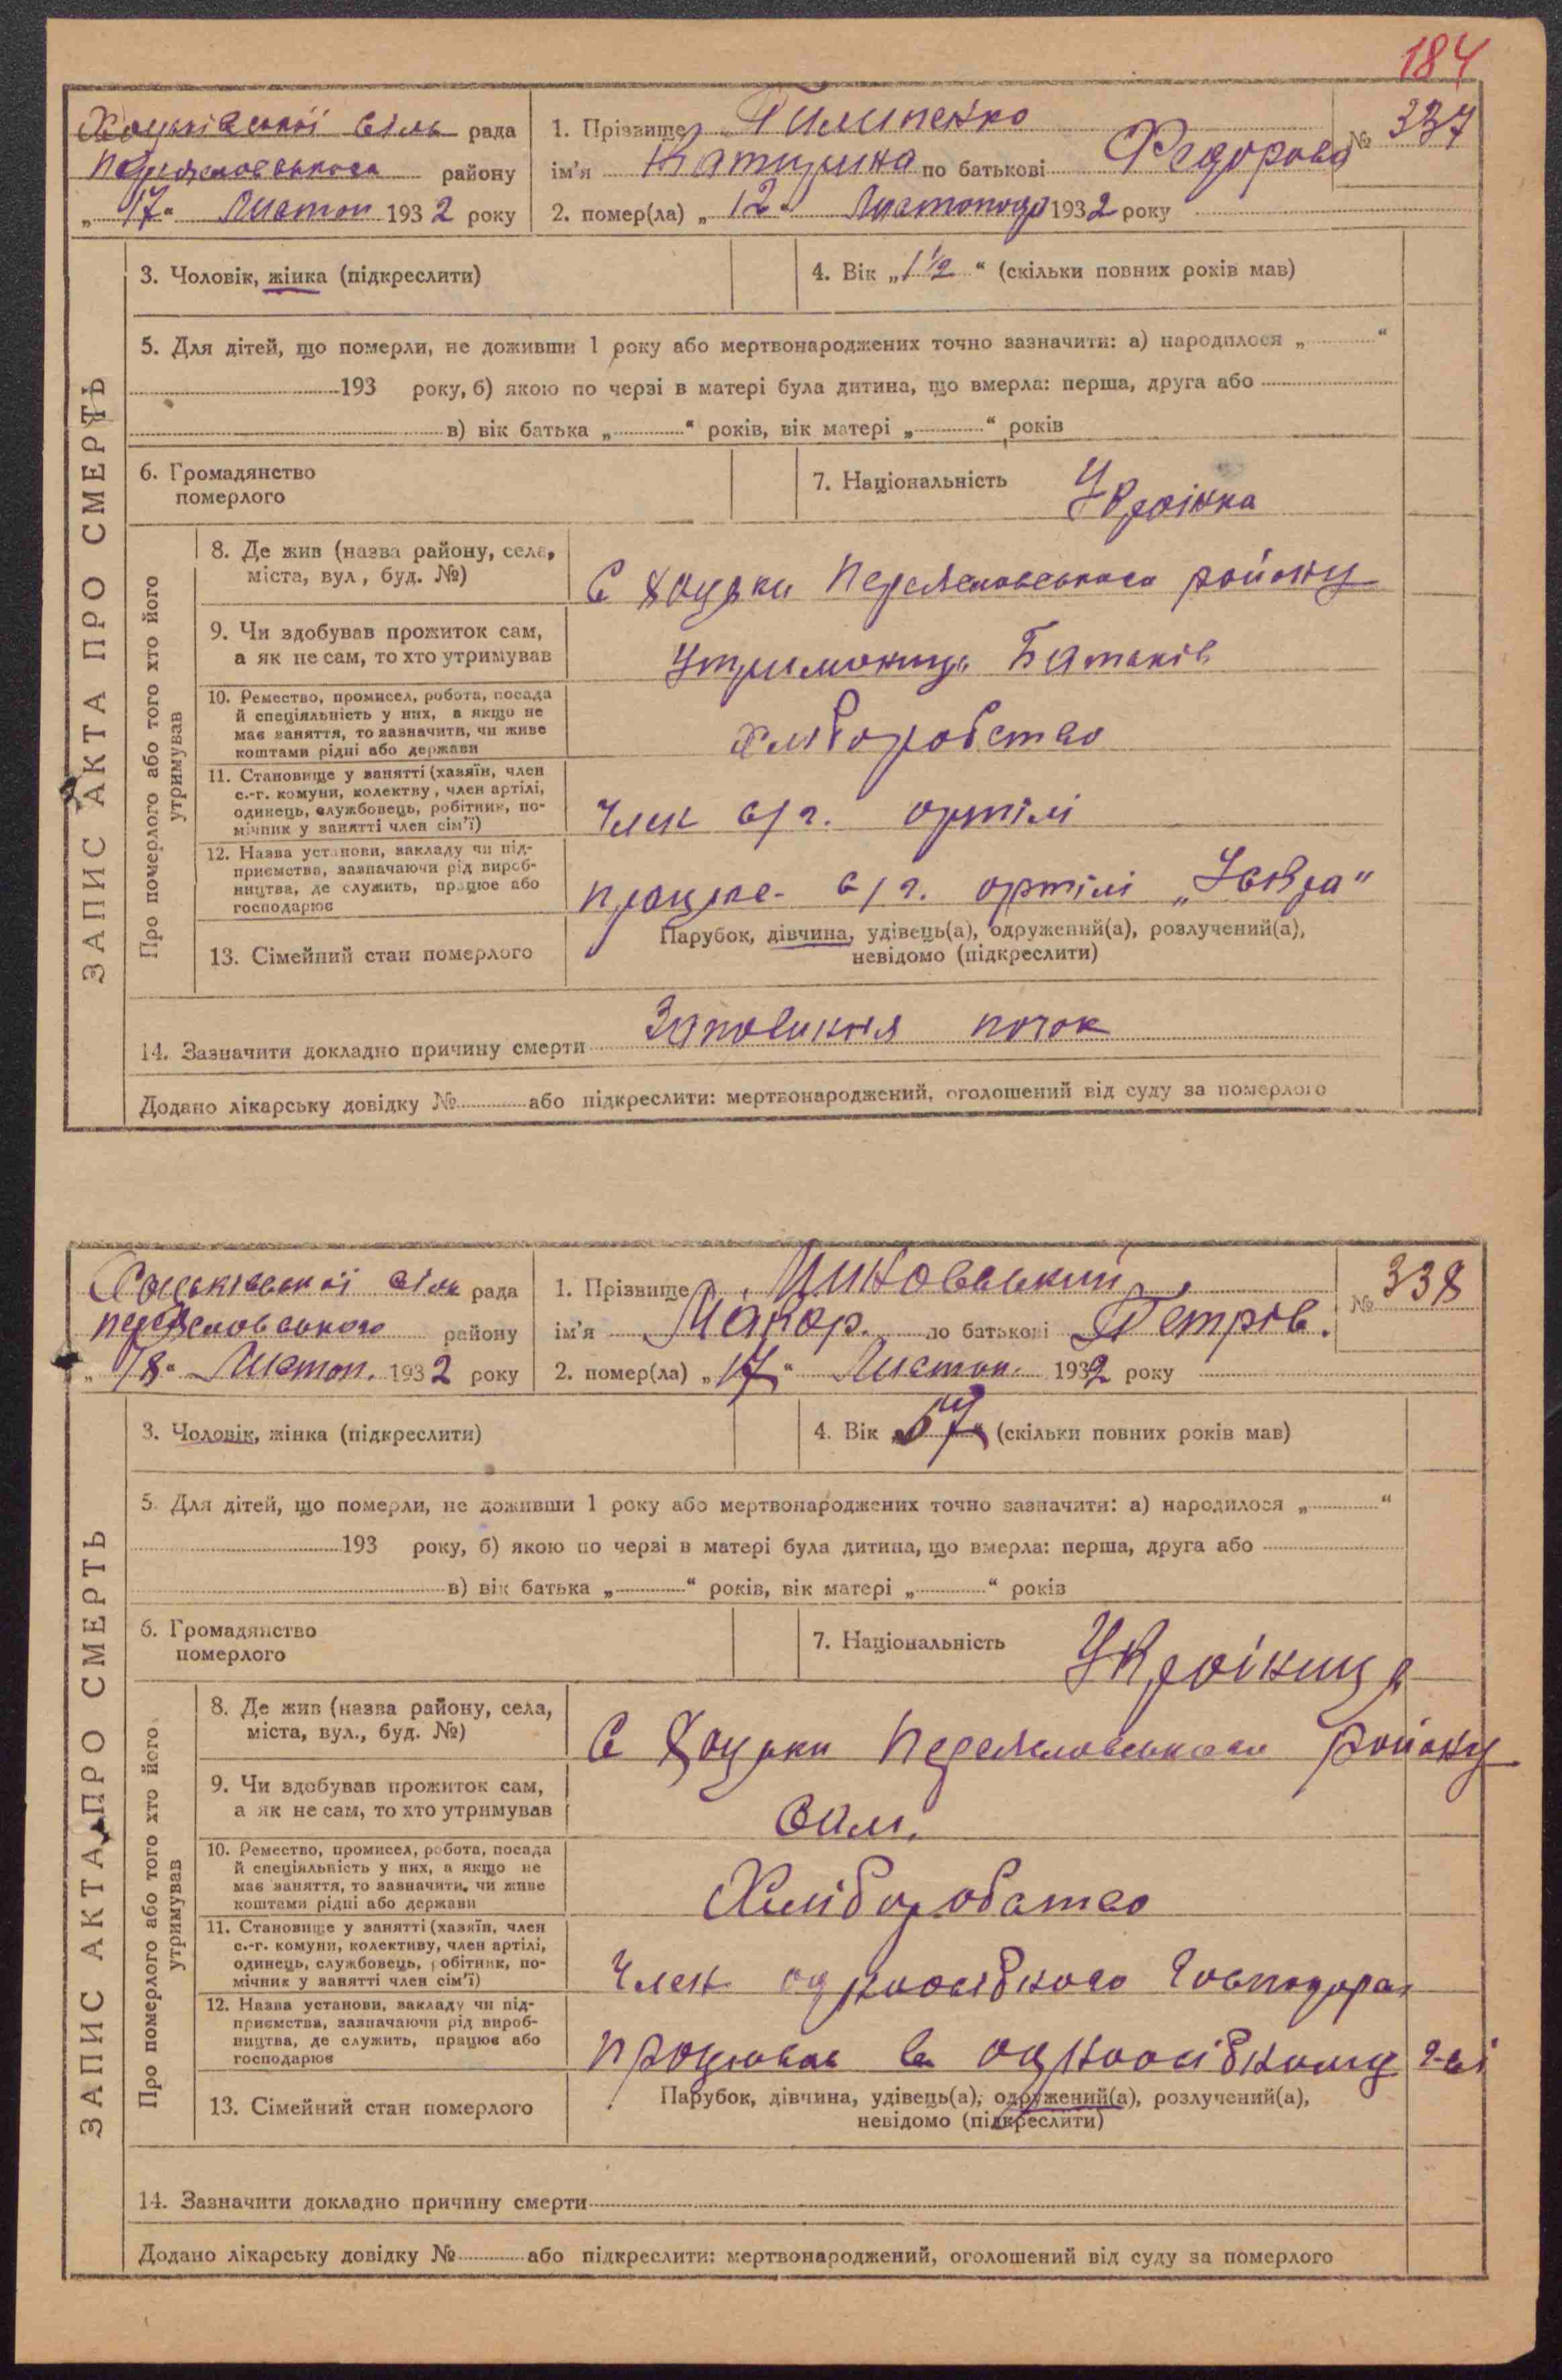 184
Хоцьківської сіль рада
Переяславського району
„17“ Листоп 1932 року
1. Прізвище Пилипенко
№ 337
ім’я Катирина по батькові Федорова
2. помер(ла) „12“ Листопада 1932 року
ЗАПИС АКТА ПРО СМЕРТЬ
3. Чоловік, жінка (підкреслити)
4. Вік „1 1/2“ (скільки повних років мав)
5. Для дітей, що померли, не доживши 1 року або мертвонароджених точно зазначити: а) народилося „ “
193 року, б) якою по черзі в матері була дитина, що вмерла: перша, друга або
в) вік батька „ “ років, вік матері „ “ років
6. Громадянство
померлого
7. Національність Українка
Про померлого або того хто його
утримував
8. Де жив (назва району, села,
міста, вул, буд. №)
С Хоцьки Переяславського району
9. Чи здобував прожиток сам,
а як не сам, то хто утримував
Утриманиця Батьків
10. Ремество, промисел, робота, посада
й спеціяльність у них, а якщо не
має заняття, то зазначити, чи живе
коштами рідні або держави
Хліборобство
11. Становище у занятті (хазяїн, член
с.-г. комуни, колектву, член артілі,
одинець, службовець, робітник, по-
мічник у занятті член сім’ї)
Член с/г. артілі
12. Назва установи, закладу чи під-
приємства, зазначаючи рід вироб-
ництва, де служить, працює або
господарює
працює с/г. артілі
13. Сімейний стан померлого
Парубок, дівчина, удівець(а), одружений(а), розлучений(а),
невідомо (підкреслити)
14. Зазначити докладно причину смерти Запалиння почок
Додано лікарську довідку № або підкреслити: мертвонароджений, оголошений від суду за померлого
Хоцьківської сіль рада
Переяславського району
„18“ Листоп. 1932 року
1. Прізвище
№ 338
ім’я Макар. по батькові Петров.
2. помер(ла) „17“ Листоп. 1932 року
ЗАПИС АКТА ПРО СМЕРТЬ
3. Чоловік, жінка (підкреслити)
4. Вік „57“ (скільки повних років мав)
5. Для дітей, що померли, не доживши 1 року або мертвонароджених точно зазначити: а) народилося „ “
193 року, б) якою по черзі в матері була дитина, що вмерла: перша, друга або
в) вік батька „ “ років, вік матері „ “ років
6. Громадянство
померлого
7. Національність Україниць
Про померлого або того хто його
утримував
8. Де жив (назва району, села,
міста, вул., буд. №)
С Хоцьки Переяславського району
9. Чи здобував прожиток сам,
а як не сам, то хто утримував
Сам.
10. Ремество, промисел, робота, посада
й спеціяльність у них, а якщо не
має заняття, то зазначити, чи живе
коштами рідні або держави
Хліборобство
11. Становище у занятті (хазяїн, член
с.-г. комуни, колективу, член артілі,
одинець, службовець, робітник, по-
мічник у занятті член сім’ї)
Член одноосібного Господара
12. Назва установи, закладу чи під-
приємства, зазначаючи рід вироб-
ництва, де служить, працює або
господарює
працював в одноосібному г-ві
13. Сімейний стан померлого
Парубок, дівчина, удівець(а), одружений(а), розлучений(а),
невідомо (підкреслити)
14. Зазначити докладно причину смерти
Додано лікарську довідку № або підкреслити: мертвонароджений, оголошений від суду за померлого